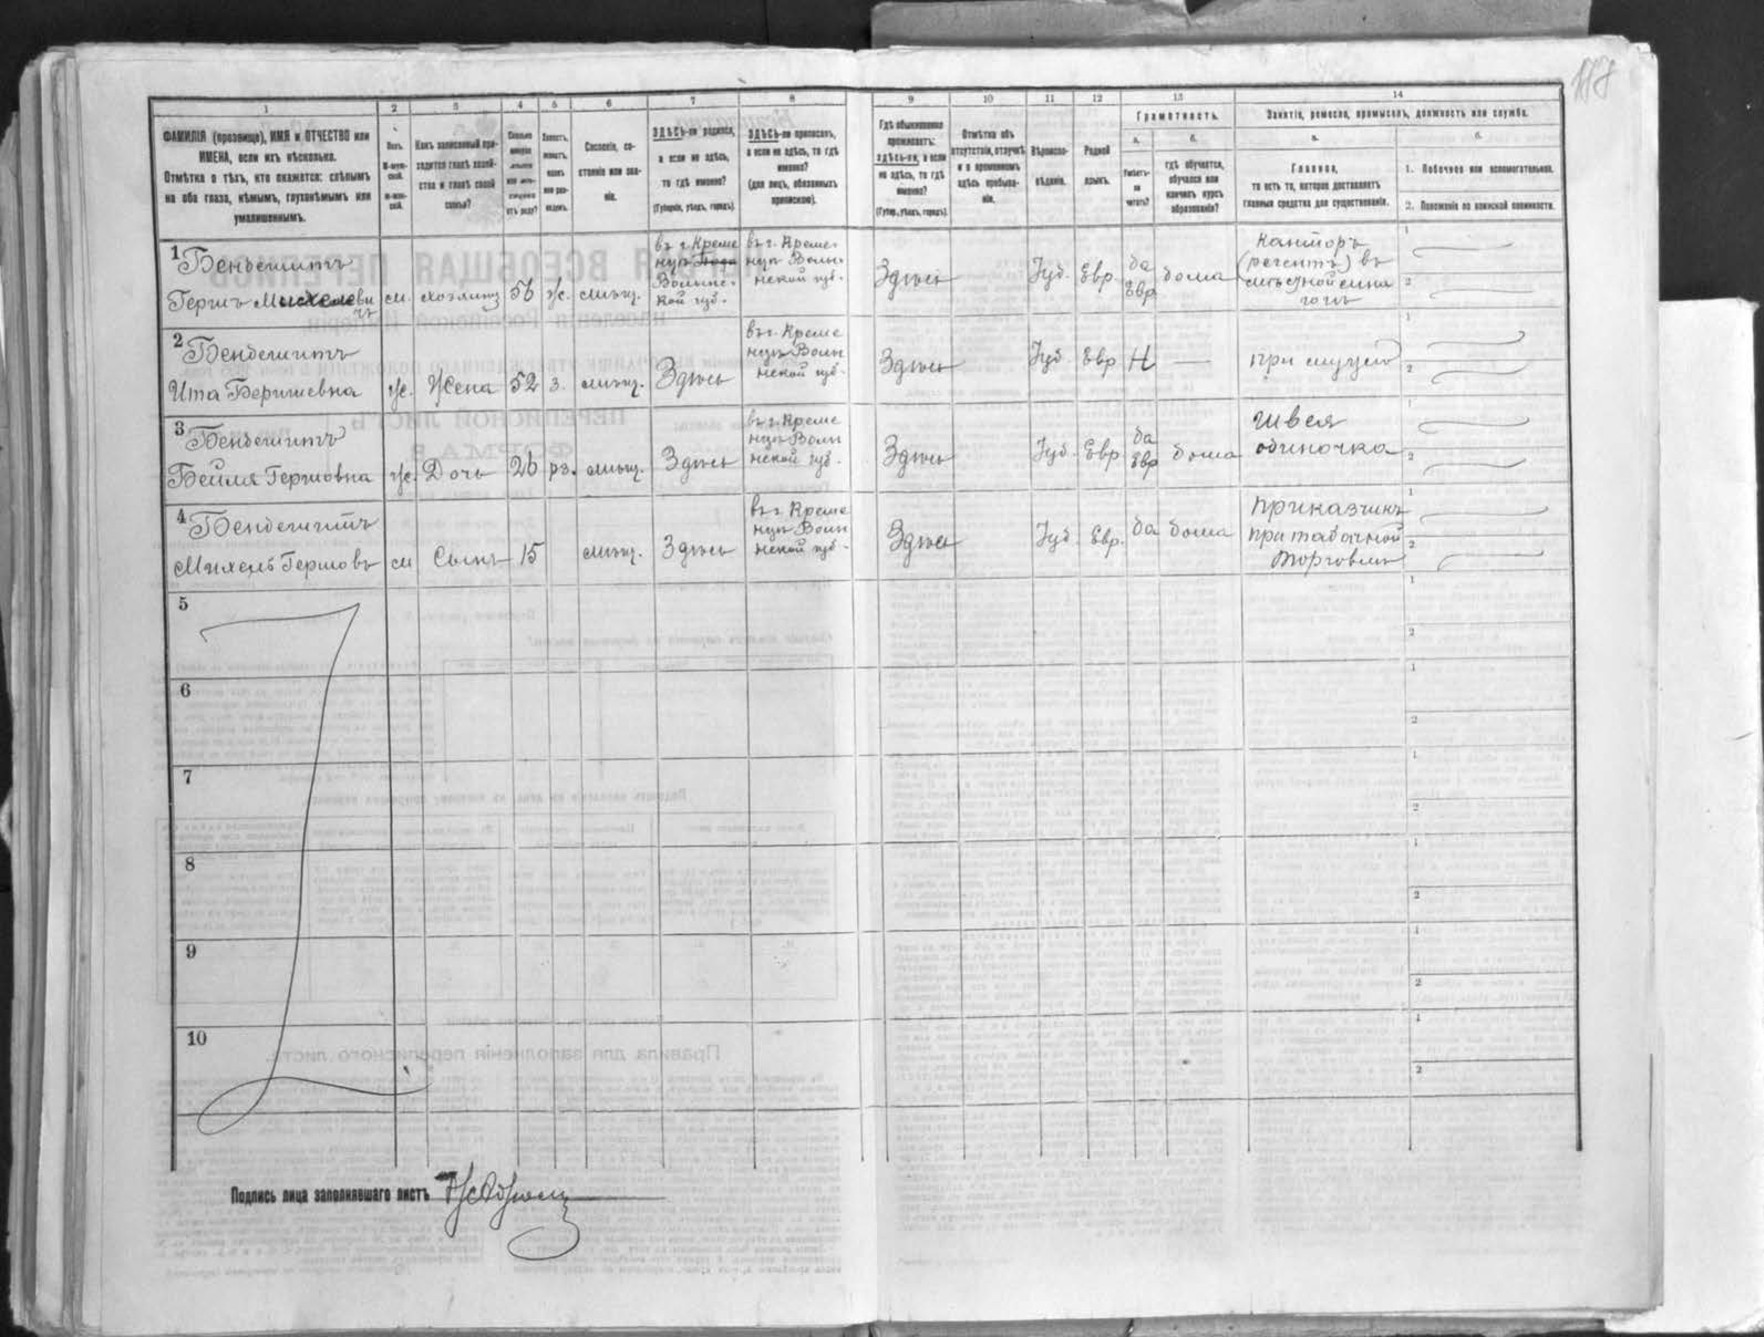 118
1 2 3 4 5 6 7 8 9 10 11 12 13 14
ФАМИЛІЯ (прозвище), ИМЯ и ОТЧЕСТВО или
ИМЕНА, если ихъ нѣсколько.
Отмѣтка о тѣхъ, кто окажется: слѣпымъ
на оба глаза, нѣмымъ, глухонѣмымъ или
умалишеннымъ.
Полъ.
М-муж-
ской.
Ж-жен-
скій.
Какъ записанный при-
ходится главѣ хозяй-
ства и главѣ своей
семьи?
Сколько
минуло
лѣтъ
или мѣся-
цевъ
отъ роду?
Холостъ,
женатъ,
вдовъ
или раз-
веденъ.
Сословіе, со-
стояніе или зва-
ніе.
ЗДѢСЬ-ли родился,
а если не здѣсь,
то гдѣ именно?
(Губернія, уѣздъ, городъ).
ЗДѢСЬ-ли приписанъ,
а если не здѣсь, то гдѣ
именно?
(для лицъ, обязанныхъ
припискою).
Гдѣ обыкновенно
проживаетъ:
здѣсь-ли, а если
не здѣсь, то гдѣ
именно?
(Губер., уѣздъ, городъ).
Отмѣтка объ
отсутствіи, отлучкѣ
и о временномъ
здѣсь пребыва-
ніи.
Вѣроиспо-
вѣданіе.
Родной
языкъ.
Грамотность.
а.
Умѣетъ-
ли
читать?
б.
гдѣ обучается,
обучался или
кончилъ курсъ
образованія?
Занятіе, ремесло, промыселъ, должность или служба.
а.
Главное,
то есть то, которое доставляетъ
главныя средства для существованія.
б.
1. Побочное или вспомогательное.
2. Положеніе по воинской повинности.
1 Бендешитъ
Гершъ Михелеви
чъ
м. хозяинъ 56 ж. мѣщ.
въ г. Креме
нцѣ
Волынс-
кой губ.
въ г. Креме-
нцѣ Волы-
нской губ.
Здѣсь Іуд. Евр. да
Евр. дома
Канторъ
(регентъ) въ
1
2
2 Бендешитъ
Ита Бершевна ж. Жена 52 з. мѣщ. Здѣсь
въ г. Креме
нцѣ Волы
нской губ.
Здѣсь Іуд. Евр Н — при мужѣ
1
2
3 Бендешитъ
Бейля Гершовна ж. Дочь 26 рз. мѣщ. Здѣсь
въ г. Креме
нцѣ Волы
нской губ.
Здѣсь Іуд. Евр да
Евр дома
Швея
одиночка
1
2
4 Бендешитъ
Михель Гершовъ м Сынъ 15 мѣщ. Здѣсь
въ г. Креме
нцѣ Волы
нской губ.
Здѣсь Іуд. Евр. да дома
Приказчикъ
при табачной
торговлѣ
1
2
5
1
2
6
1
2
7
1
2
8
1
2
9
1
2
10
1
2
Подпись лица заполнявшаго листъ